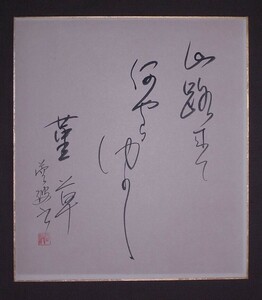 山路来て
何やらゆかし
菫草